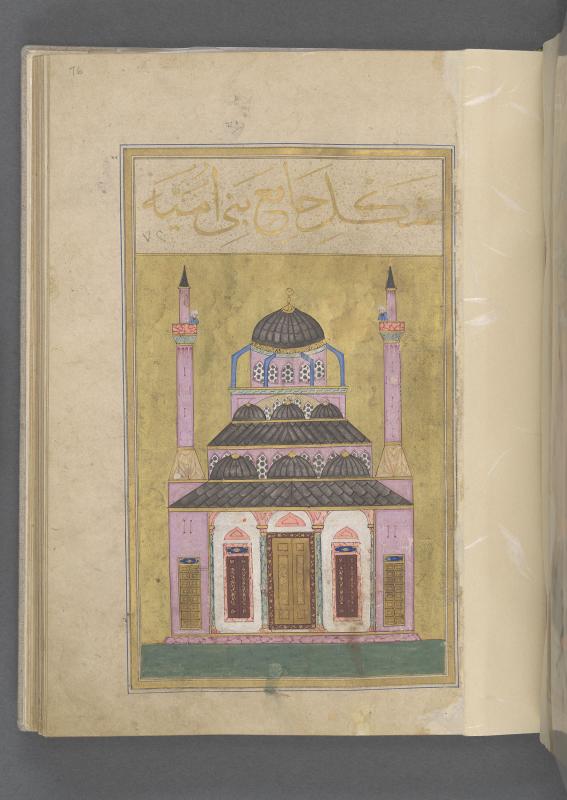 76
شكل جامع بنى اميه